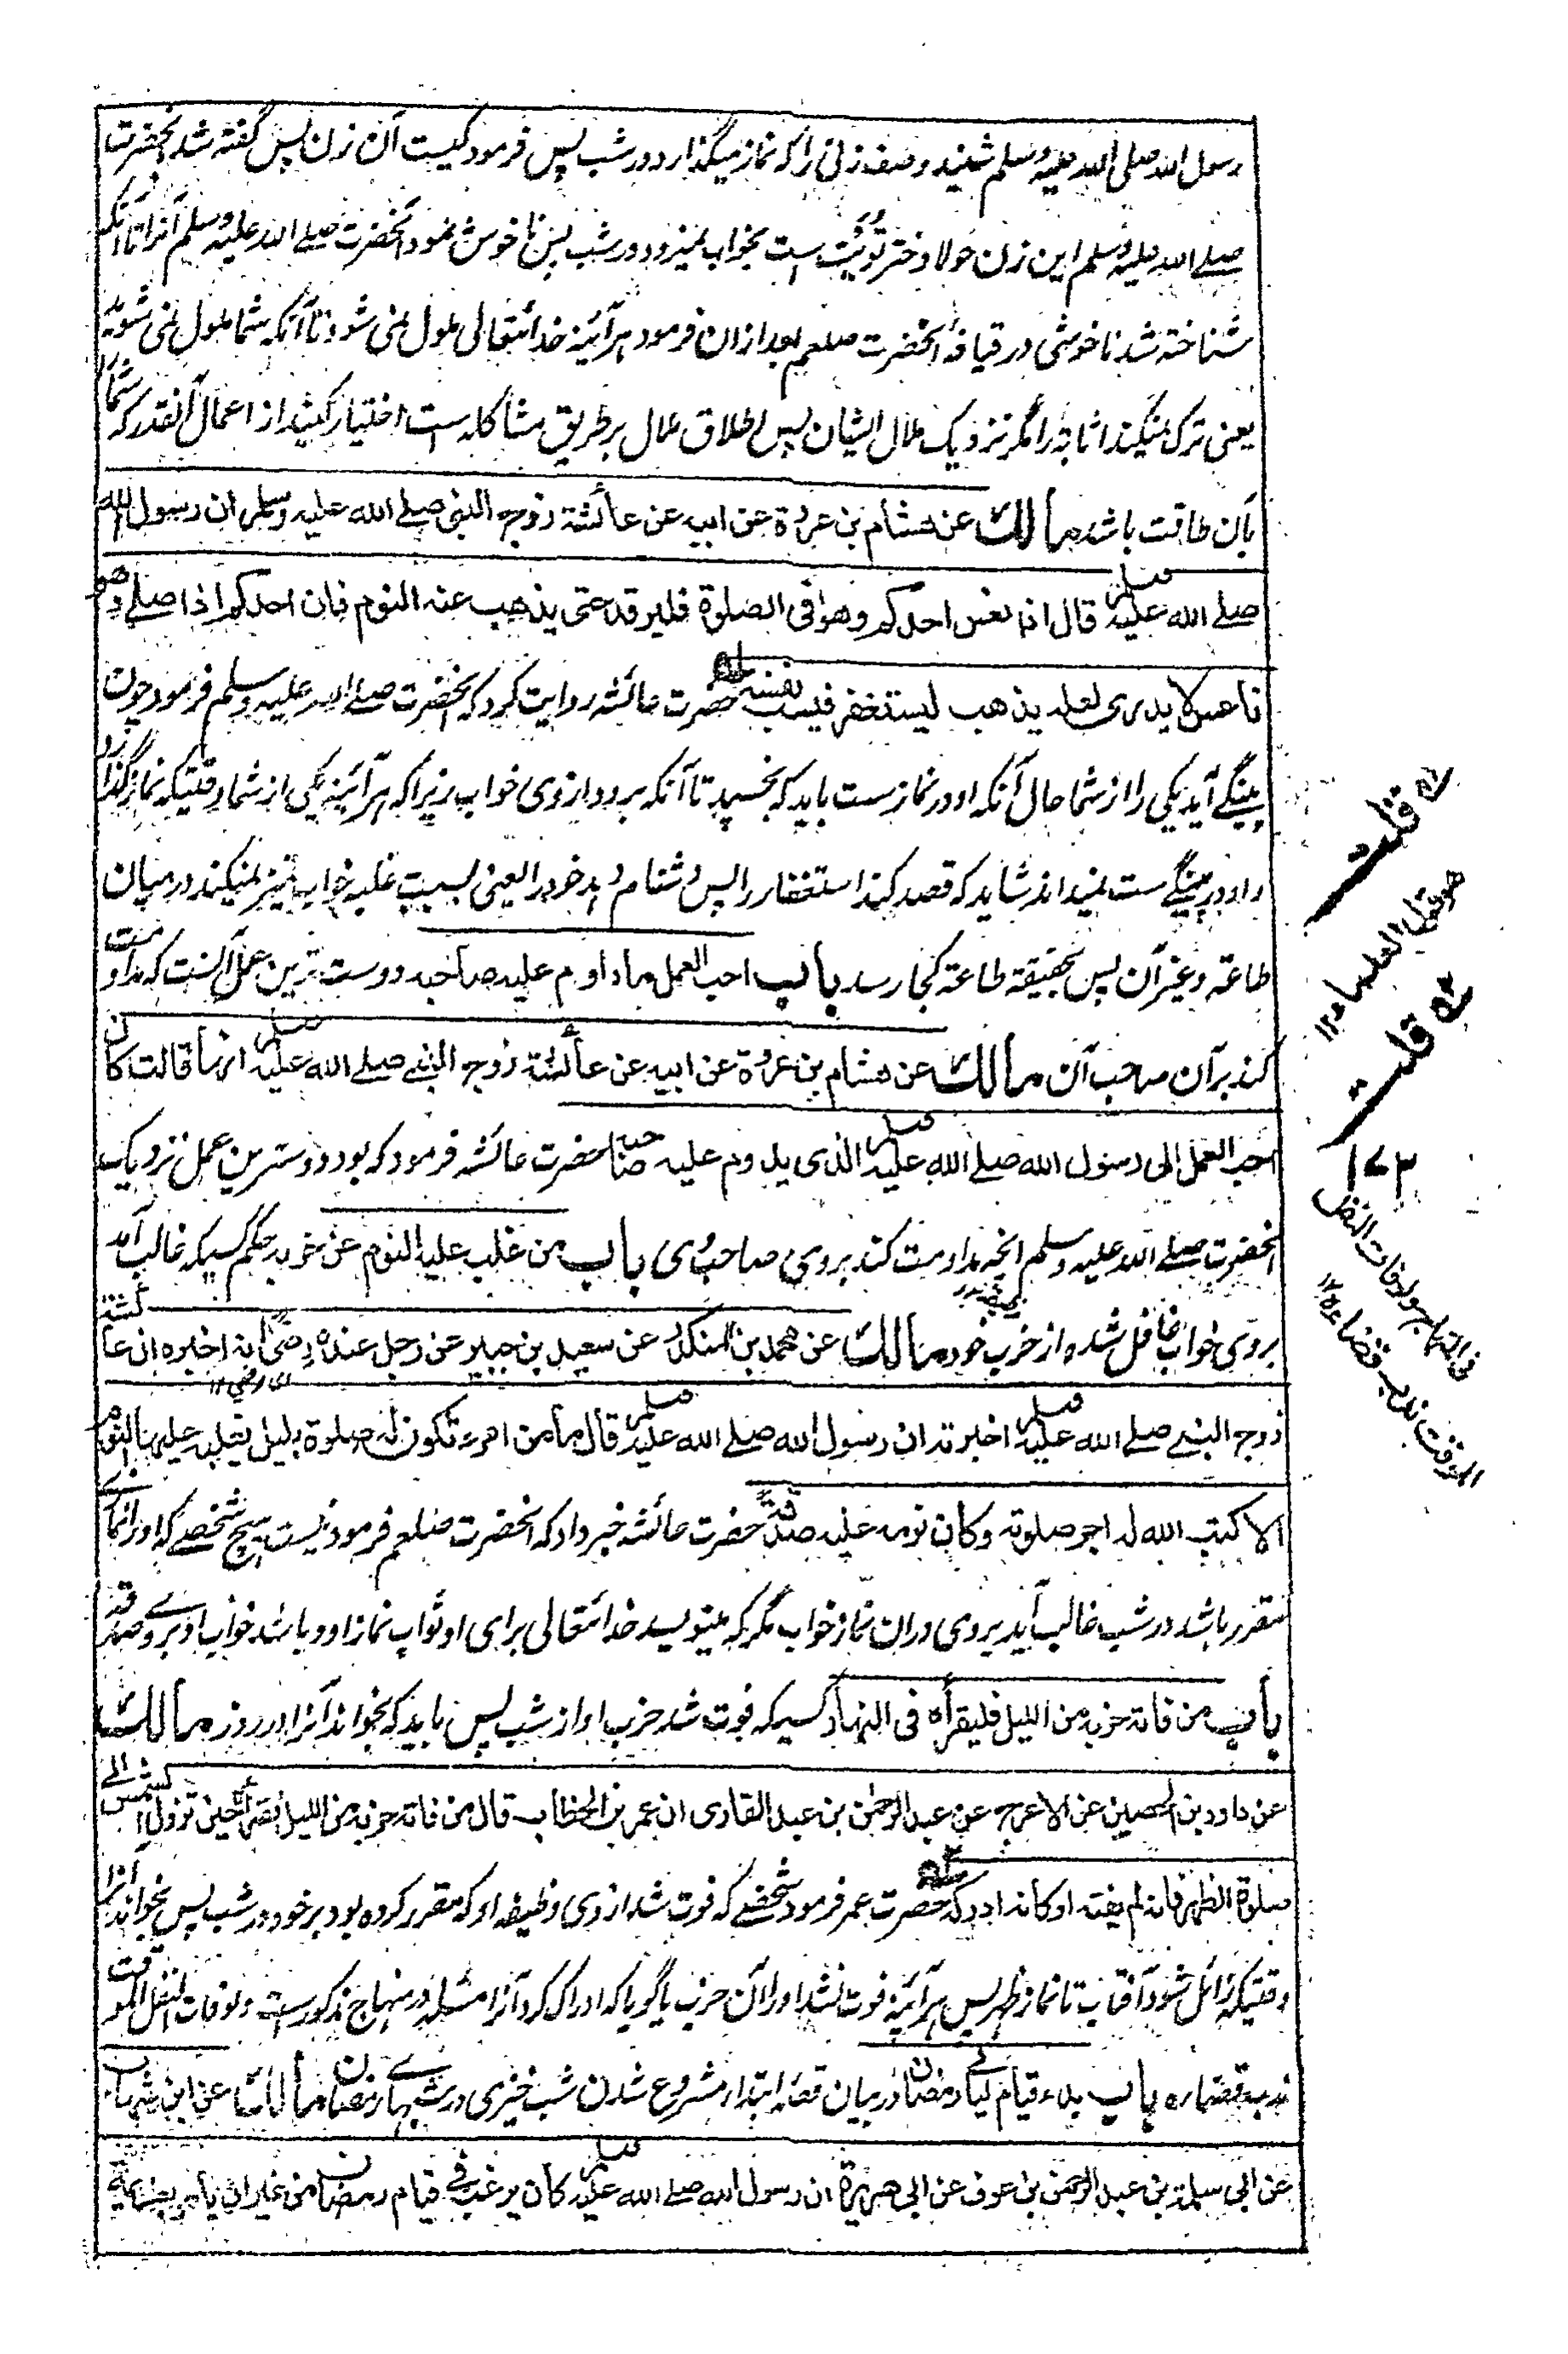 رسول الله صلی الله علیه وسلم شنید وصف زنی را که نماز میگذارد در شب پس فرمود کیست آن زن پس گفته شد آنحضرت
صلے الله علیه وسلم این زن حولا دختر تُوَیْت است بخواب نمیرود در شب پس ناخوش نمود آنحضرت صلے الله علیه وسلم آنرا تا آنکه
شناخته شد ناخوشی در قیافۀ آنحضرت صلعم بعد ازان فرمود هرآئینه خدا تعالی ملول نمی شود تا آنکه شما ملول نمی شوید
یعنی ترک نمیکند اثابه را مگر نزدیک ملال ایشان پس اطلاق ملال بر طریق مشاکله است اختیار کنید از اعمال آنقدر که شما را
بآن طاقت باشد مالك عن هشام بن عروة عن ابيه عن عائشة زوج النبی صلے الله علیه وسلم ان رسول الله
صلے الله علیه وسلم قال اذا نعس احدکم وهو فی الصلوة فلیرقد حتی یذهب عنه النوم فان احدکم اذا صلے وهو
ناعس لا یدری لعله یذهب لیستغفر فیسب نفسه حضرت عائشه روایت کرد که آنحضرت صلے الله علیه وسلم فرمود چون
پینگے آید یکی را از شما حال آنکه او در نماز ست باید که بخسپد تا آنکه برود از وی خواب زیرا که هرآئینه یکی از شما وقتیکه نماز گذارد
و او در پینگے ست نمیداند شاید که قصد کند استغفار را پس دشنام دهد خود را یعنی بسبب غلبه خواب تمیز نمیکند در میان
طاعة وغیر آن پس بحقیقة طاعة کجا رسد باب احب العمل ما داوم علیه صاحبه دوست ترین عمل آنست که مداومت
کند بر آن صاحب آن مالك عن هشام بن عروة عن ابیه عن عائشة زوج النبی صلے الله علیه وسلم انها قالت کان
احب العمل الی رسول الله صلے الله علیه وسلم الذی یدوم علیه صاحبه حضرت عائشه فرمود که بود دوسترین عمل نزدیک
آنحضرت صلے الله علیه وسلم آنچه مداومت کند بروی صاحب وی باب من غلب علیه النوم عن حزبه حکم کسیکه غالب آمد
بروی خواب غافل شده از حزب خود مالك عن محمد بن المنکدر عن سعید بن جبیر عن رجل عنده رضی انه اخبره ان عائشة
ای مرضی ۱۲
زوج النبی صلے الله علیه وسلم اخبرته ان رسول الله صلے الله علیه وسلم قال ما من امرء تکون له صلوة بلیل یغلبه علیها النوم
الا کتب الله له اجر صلوته وکان نومه علیه صدقة حضرت عائشه خبر داد که آنحضرت صلعم فرمود نیست هیچ شخصے که او را نمازے
مقرر باشد در شب غالب آید بروی دران نماز خواب مگر که بنویسد خدا تعالی برای او ثواب نماز او و باشد خواب او بروے صدقه
باب من فاته حزبه من اللیل فلیقرأه فی النهار کسیکه فوت شد حزب او از شب پس باید که بخواند آنرا در روز مالك
عن داود بن الحصین عن الاعرج عن عبد الرحمن بن عبد القاری ان عمر بن الخطاب قال من فاته حزبه من اللیل فقرأه حین تزول الشمس الی
صلوة الظهر فانه لم یفته او کانه ادرکه حضرت عمر فرمود شخصے که فوت شد از وی وظیفه او که مقرر کرده بود بر خود در شب پس بخواند آنرا
وقتیکه زائل شود آفتاب تا نماز ظهر پس هرآئینه فوت نشد او را آن حزب یا گویا که ادراک کرد آنرا مسئله در منهاج مذکور ست ولو فات النفل الموقت
ندب قضاءه باب بدء قیام لیالی رمضان در بیان قصۀ ابتدا مشروع شدن شب خیزی در شبهاے رمضان مالك عن ابن شهاب
عن ابی سلمة بن عبد الرحمن بن عوف عن ابی هریرة ان رسول الله صلے الله علیه وسلم کان یرغب فی قیام رمضان من غیر ان یأمر بعزیمة
قلت
هو قول العلماء ۱۲
قلت
۱۷۳
الموقت ندب قضاءه ۱۲